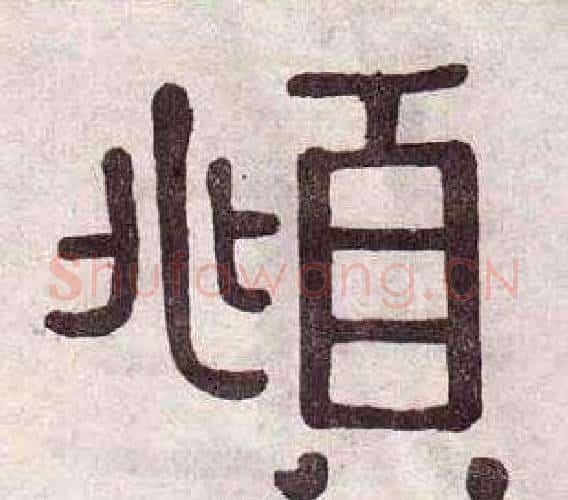 頫
Shufawang.CN